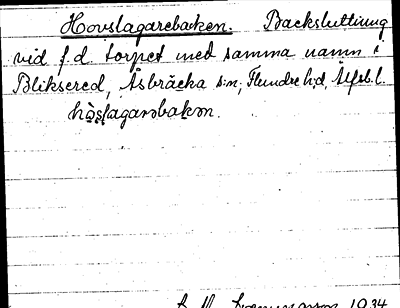 Hovslagarebacken. Backsluttning
vid f.d torpet med samma namn i
Bliksered, Åsbräcka s:n, Flundre h:d, Älfsb. l.
1934